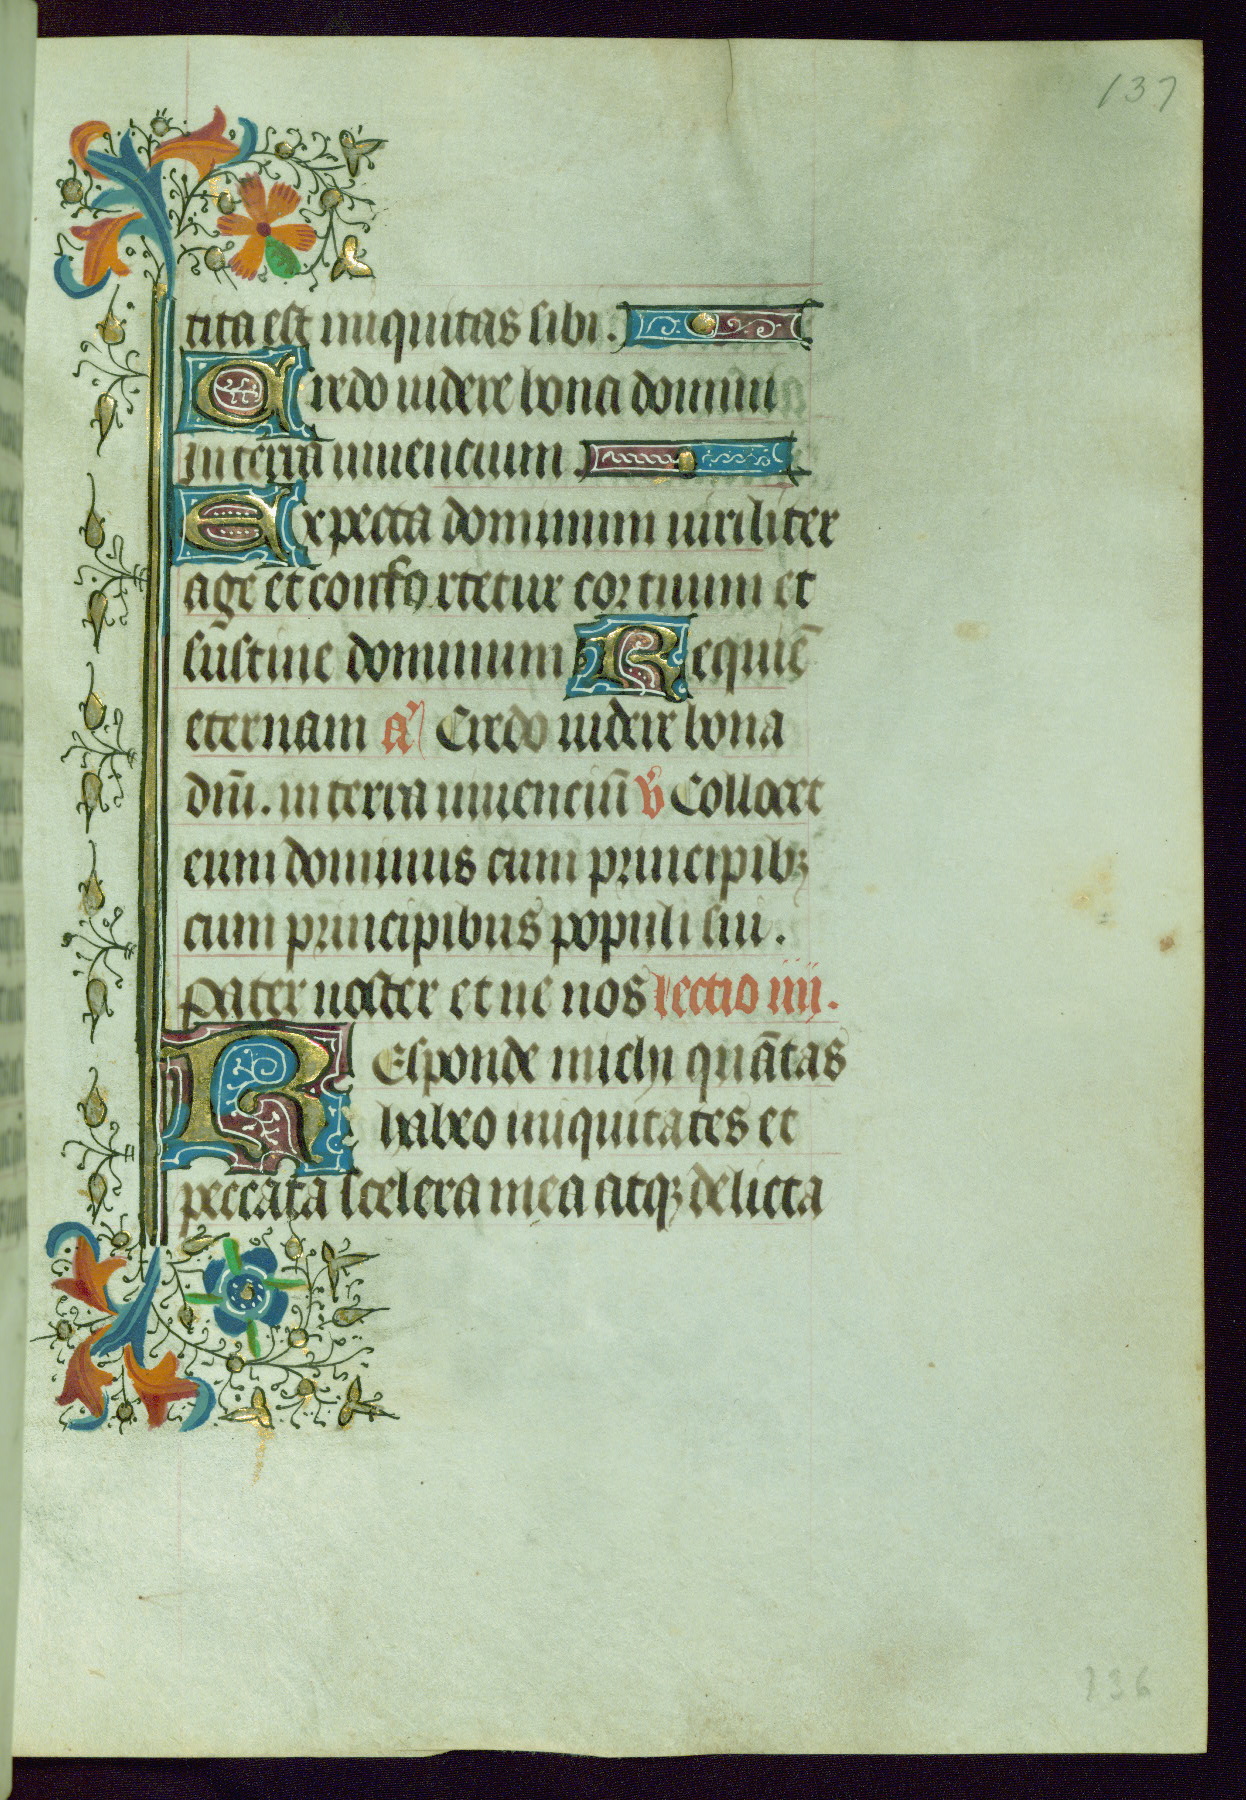 137
tita est iniquitas sibi.
Credo uidere bona domini
in terra uiuencium.
Expecta dominum uiriliter
age et confortetur cor tuum et
sustine dominum Requiē
eternam a᷒ Credo uidere bona
dn̄i. in terra uiuenciū v᷒ Collocet
eum dominus cum principibꝫ
cum principibus populi sui.
Pater noster et ne nos lectio iiii.
REsponde michi quātas
habeo iniquitates et
peccata scelera mea atqꝫ delicta
136